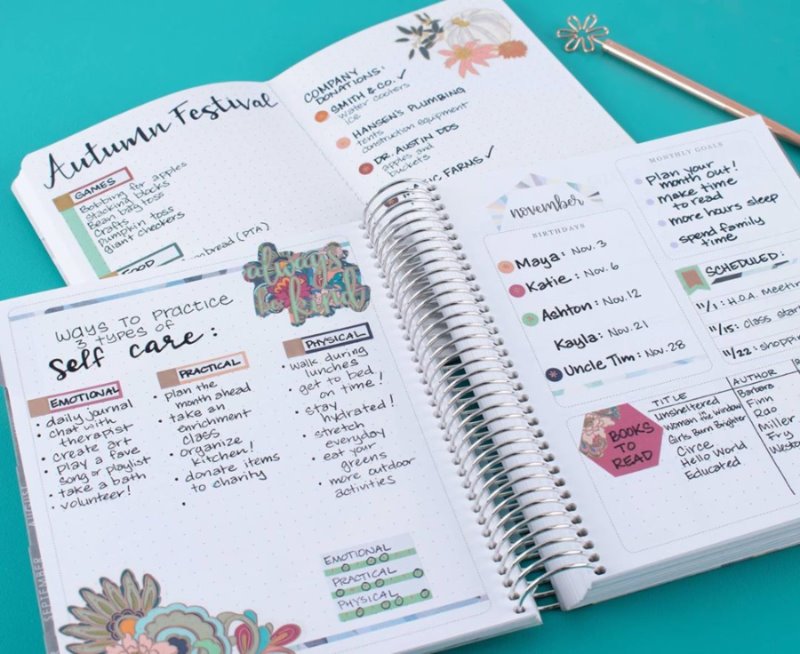 Autumn Festival
GAMES
Bobbing for apples
Stacking blocks
Bean bag toss
Crafts
Pumpkin toss
giant checkers
FOOD
bread (PTA)
COMPANY
DONATIONS:
SMITH & CO. ✓
water coolers
ice
HANSEN'S PLUMBING
tents
construction equipment
DR. AUSTIN DDS
apples and
buckets
FARMS ✓
always
be kind
WAYS TO PRACTICE
3 TYPES OF
Self care:
EMOTIONAL
• daily journal
• chat with
therapist
• create art
• play a fave
song or playlist
• take a bath
• volunteer!
PRACTICAL
• plan the
month ahead
• take an
enrichment
class
• organize
kitchen!
• donate items
to charity
•
PHYSICAL
• walk during
lunches
• get to bed
on time!
• stay
hydrated!
• stretch
everyday
• eat your
greens
• more outdoor
activities
EMOTIONAL
PRACTICAL
PHYSICAL
SEPTEMBER
AUGUST
november
BIRTHDAYS
Maya: Nov. 3
Katie: Nov. 6
Ashton: Nov. 12
Kayla: Nov. 21
Uncle Tim: Nov. 28
MONTHLY GOALS
Plan your
month out!
Make time
to read
more hours sleep
spend family
time
SCHEDULED:
11/1: H.O.A. Meeti
11/15: class star
11/22: shoppi
BOOKS
TO
READ
TITLE AUTHOR
Unsheltered Barbara
Woman the Window Finn
Girls Burn Brighter Rao
Circe Miller
Hello World Fry
Educated Westo